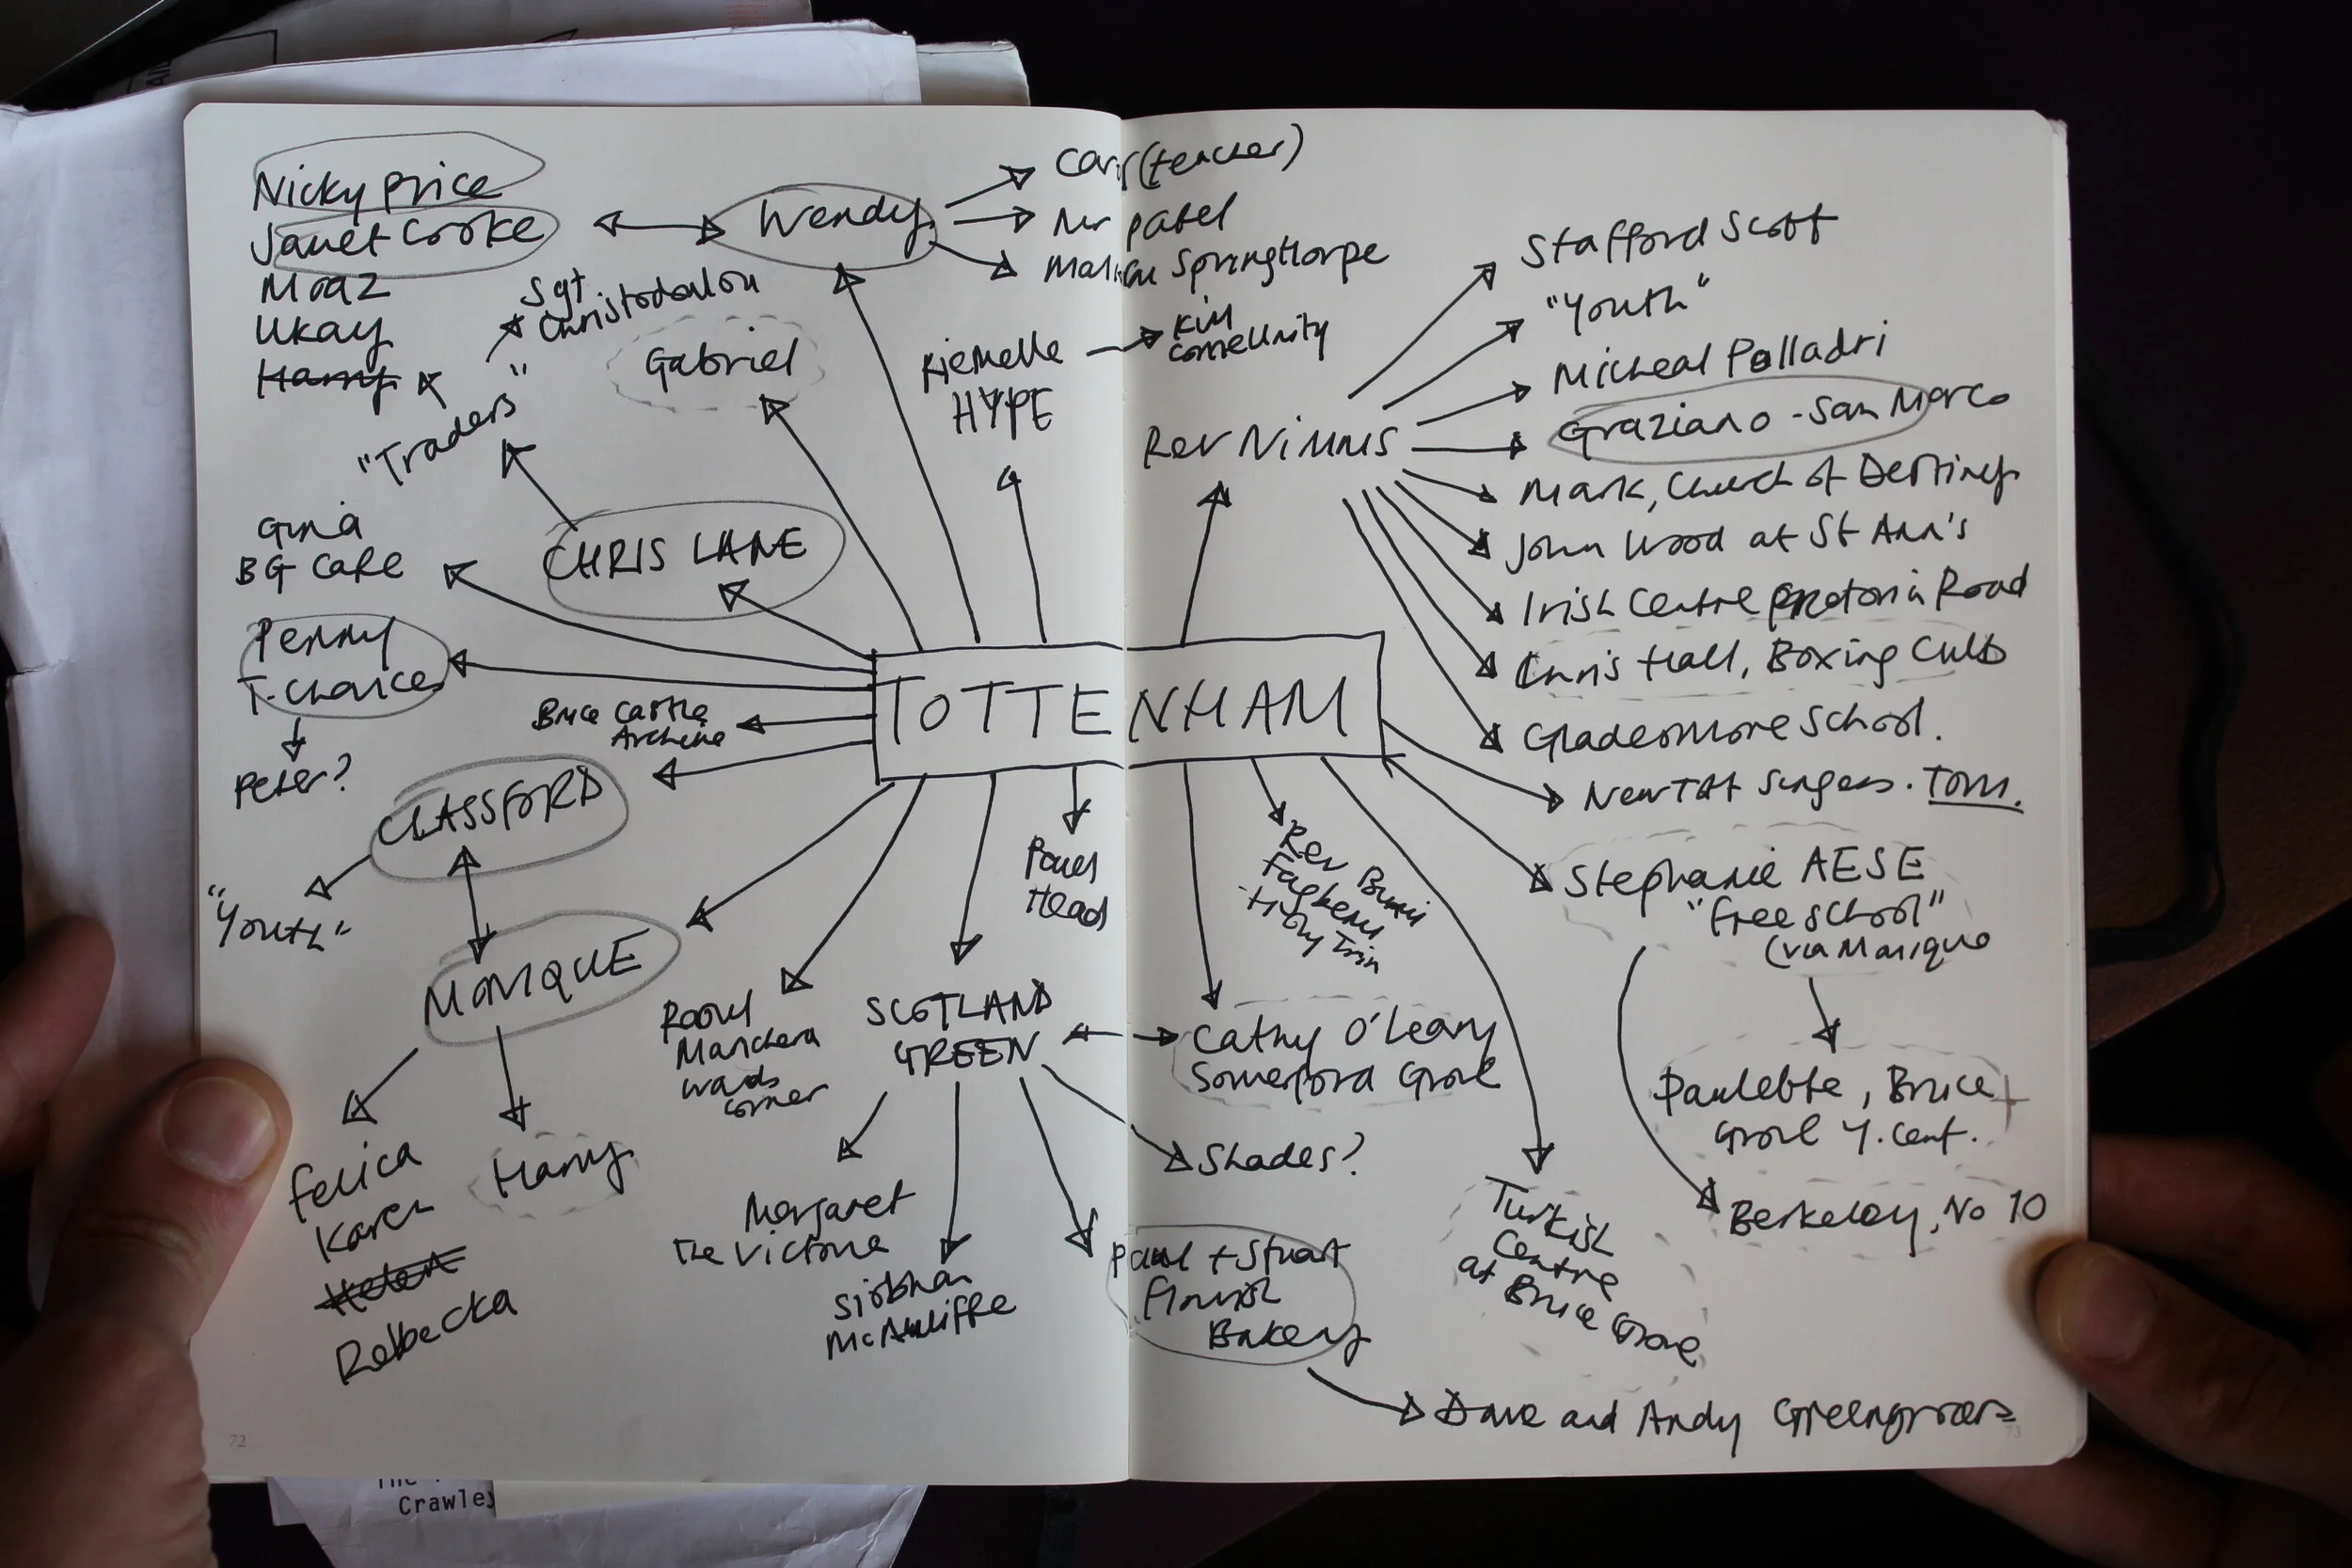 Nicky Price
Janet Cooke
Moaz
Ukay
Harry
"Traders"
Sgt
Christodoulou
Wendy
(teacher)
Mr Patel
Springthorpe
Gabriel
HYPE
Kim
CHRIS LANE
Gina
BG Cafe
Penny
T-Choice
Peter?
Bruce Castle
Archive
CLASSFORD
"Youth"
MONIQUE
Felica
Karen
Helen
Rebecka
Harry
TOTTENHAM
Rev Nimms
Stafford Scott
"Youth"
Micheal Polladri
Graziano - San Marco
Mark, Church of Destiny
John Wood at St Ann's
Irish Centre Pretoria Road
Chris Hall, Boxing Culb
Gladesmore School.
Singers. Tom.
Stephanie AESE
"free school"
(via Monique
Paulette, Bruce
Grove Y. Cent.
Berkeley, No 10
Head
Rev
Holy Trin
Cathy O'Leary
Somerford Grove
SCOTLAND
GREEN
Wards
Corner
Margaret
The Victoria
Siobhan
McAuliffe
Shades?
Paul + Stuart
Flourish
Bakery
Turkish
Centre
at Bruce Grove
Dave and Andy Greengrocers
72
73
Crawley